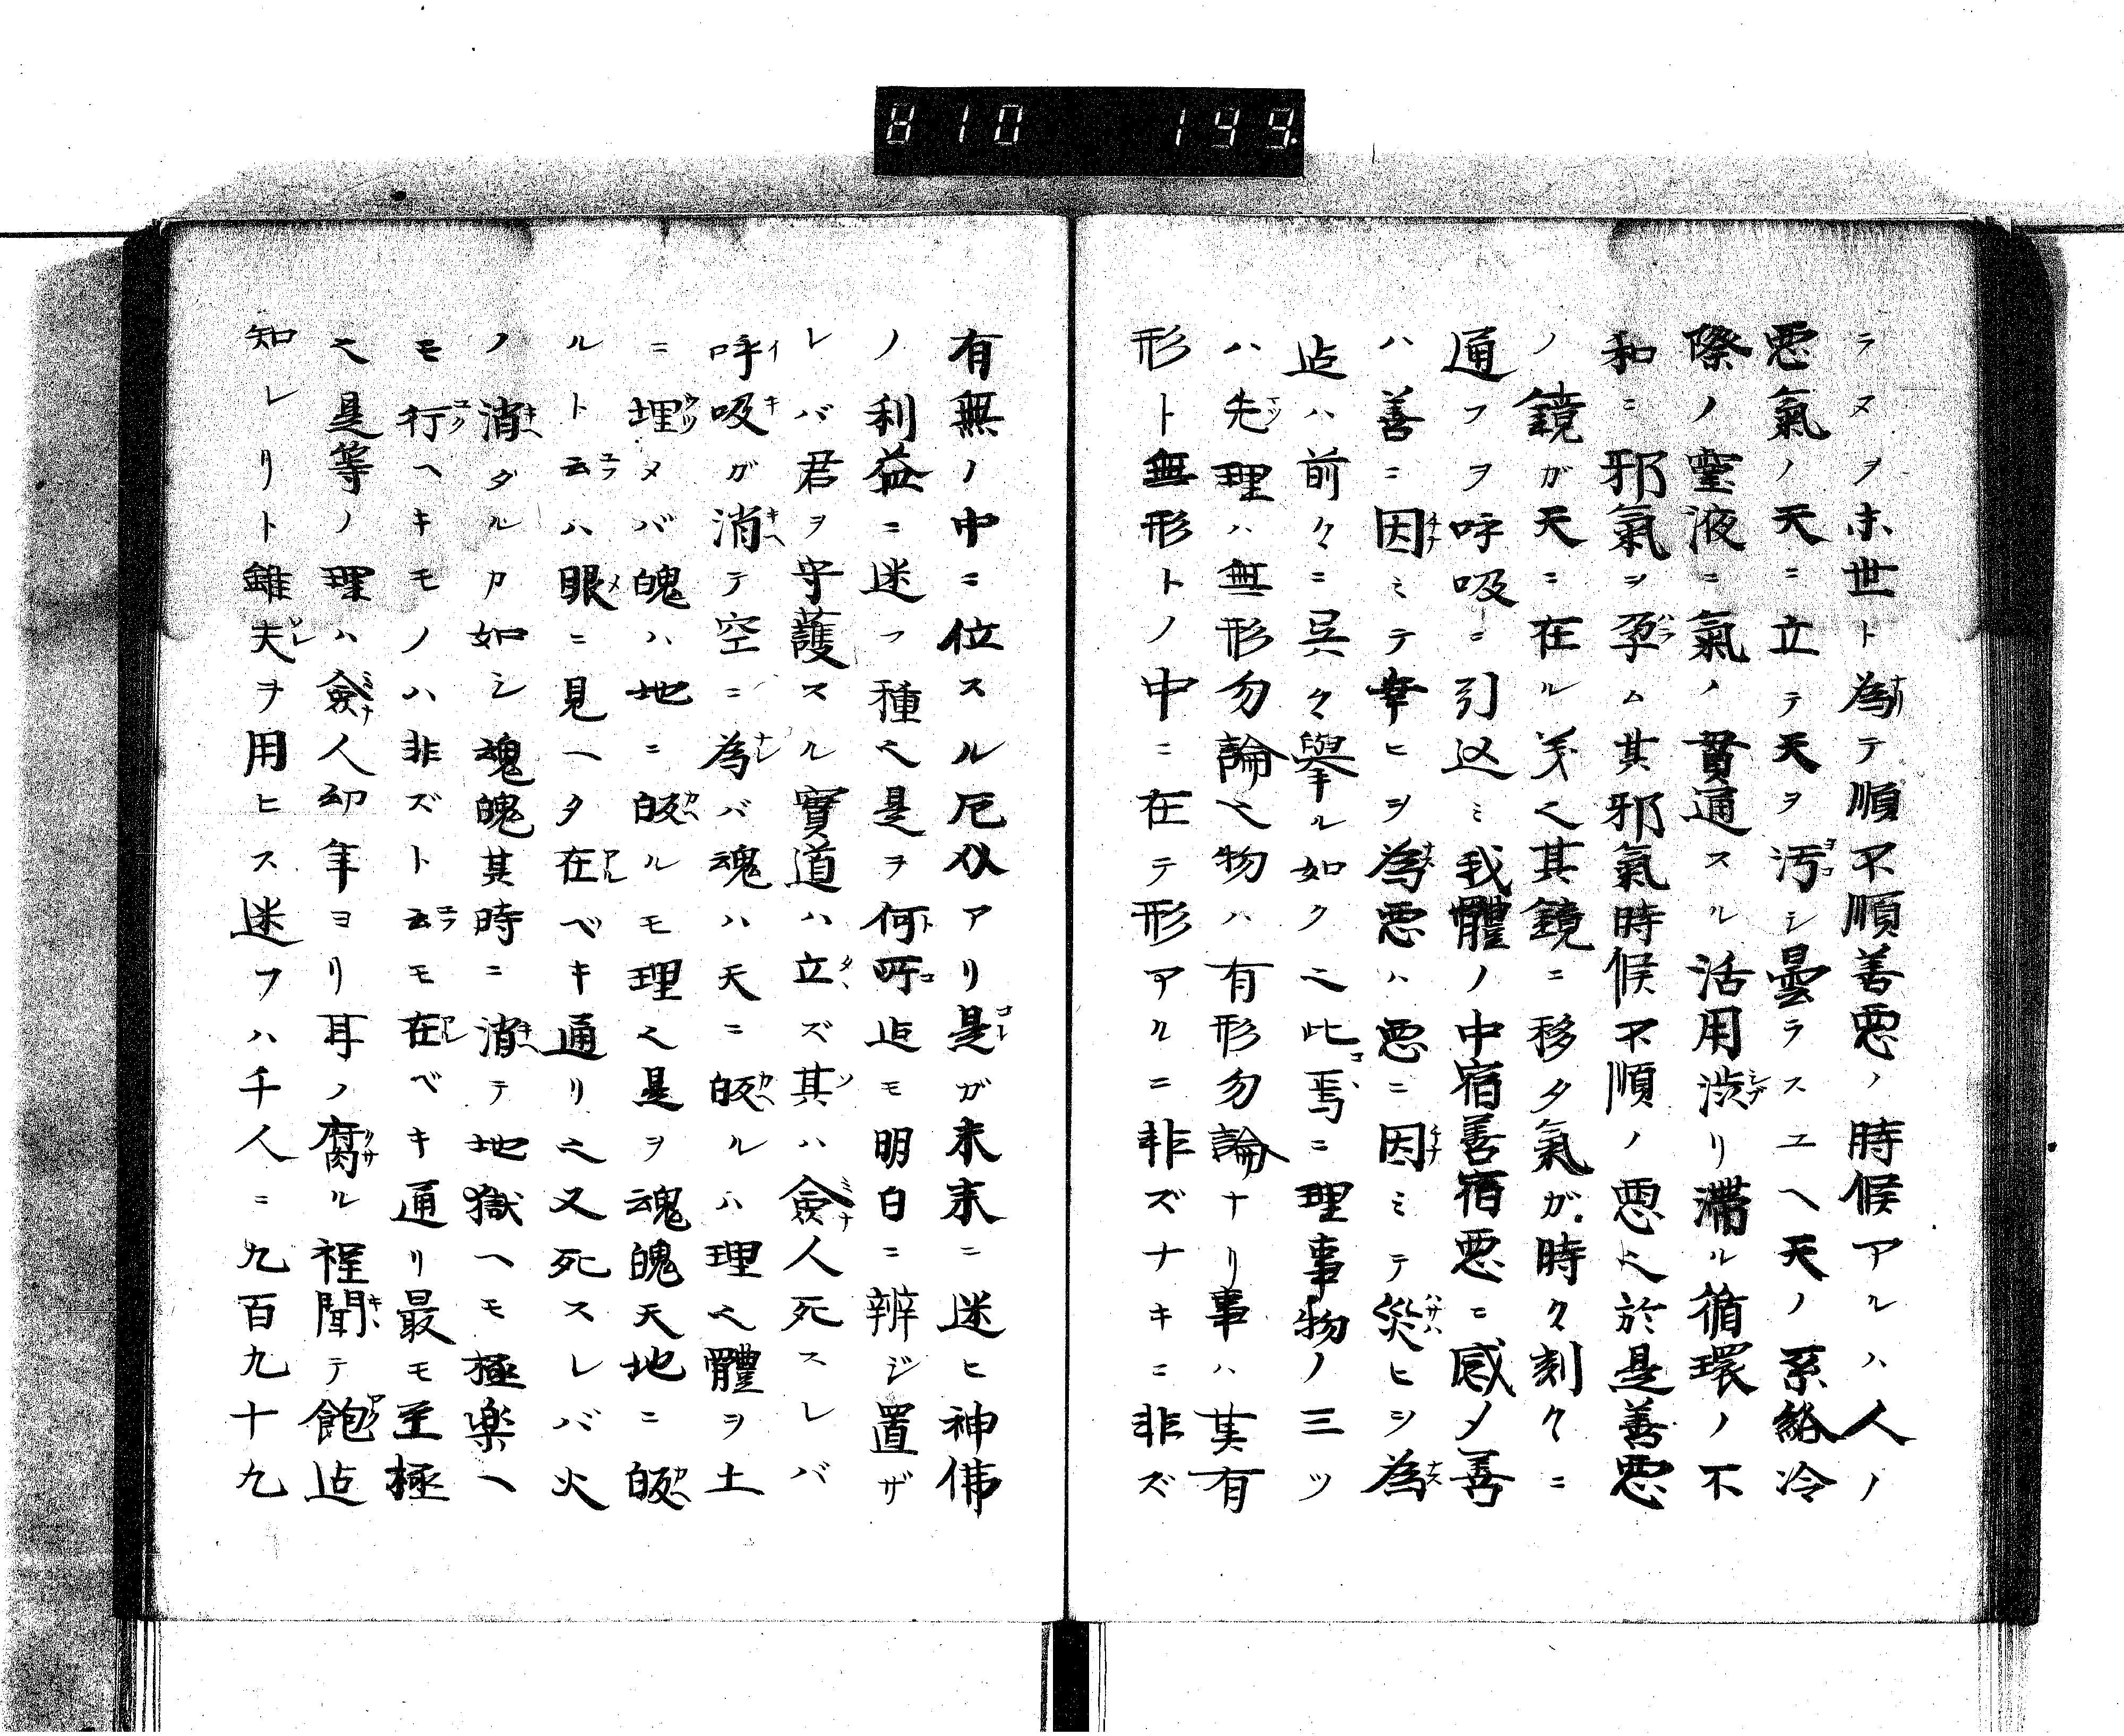 810 199.
ラヌヲ末世ト為テ順不順善悪ノ時候アルハ人ノ
悪氣ノ天ニ立テ天ヲ汚シ曇ラスユヘ天ノ系絡冷
際ノ霊液ニ氣ノ貫通スル活用渋リ滞ル循環ノ不
和ニ邪氣ヲ孕ム其邪氣時候不順ノ悪〆於是善悪
ノ鏡ガ天ニ在ル義〆其鏡ニ移タ氣ガ時々刻々ニ
通フヲ呼吸ニ引込ミ我體ノ中宿善宿悪ニ感ノ善
ハ善ニ因ミテ幸ヒヲ為悪ハ悪ニ因ミテ災ヒヲ為
迠ハ前々ニ呉々擧ル如ク〆此焉ニ理事物ノ三ツ
ハ先理ハ無形勿論〆物ハ有形勿論ナリ事ハ其有
形ト無形トノ中ニ在テ形アルニ非ズナキニ非ズ
有無ノ中ニ位スル厄 アリ是ガ末末ニ迷ヒ神佛
ノ利益ニ迷フ種〆是ヲ何所迠モ明白ニ辨ジ置ザ
レバ君ヲ守護スル實道ハ立ズ其ハ僉人死スレバ
呼吸ガ消テ空ニ為バ魂ハ天ニ皈ルハ理〆體ヲ土
ニ埋メバ魄ハ地ニ皈ルモ理〆是ヲ魂魄天地ニ皈
ルト云ハ眼ニ見ヘタ在ベキ通リ〆又死スレバ火
ノ消タルカ如シ魂魄其時ニ消テ地獄ヘモ極楽ヘ
モ行ヘキモノハ非ズト云モ在ベキ通リ最モ至極
〆是等ノ理ハ僉人幼年ヨリ耳ノ腐ル程聞テ飽迠
知レリト雖夫ヲ用ヒス迷フハ千人ニ九百九十九